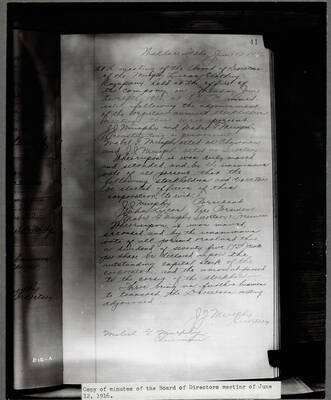 41
Wallace, Idaho, June 12, 1916
At a meeting of the Board of Directors
of the Murphy Lucas Clothing
Company held at the office of
the Company on Monday June
following the adjournment
of the regular annual stockholders
meeting there were present
J J Murphy and Mabel E Murphy
constituting a quorum
Mabel E Murphy acted as Chairman
J J Murphy acted as Secretary
Whereupon it was duly moved
and seconded, and by the unanimous
vote of all present that the
following stockholders and directors
be elected officers of this
corporation to wit:
J J Murphy President
Lucas Vice President
Mabel E Murphy Secretary & Treasurer
Whereupon it was moved
seconded and by the unanimous
vote of all present resolved that
a dividend of
per share be declared upon the
outstanding capital stock of the
corporation, and the amount passed
to the credit of the stockholders
There being no further business
to transact the Directors meeting
adjourned
J J Murphy
Secretary
Mabel E Murphy
Chairman
Copy of minutes of the Board of Directors meeting of June
12, 1916.